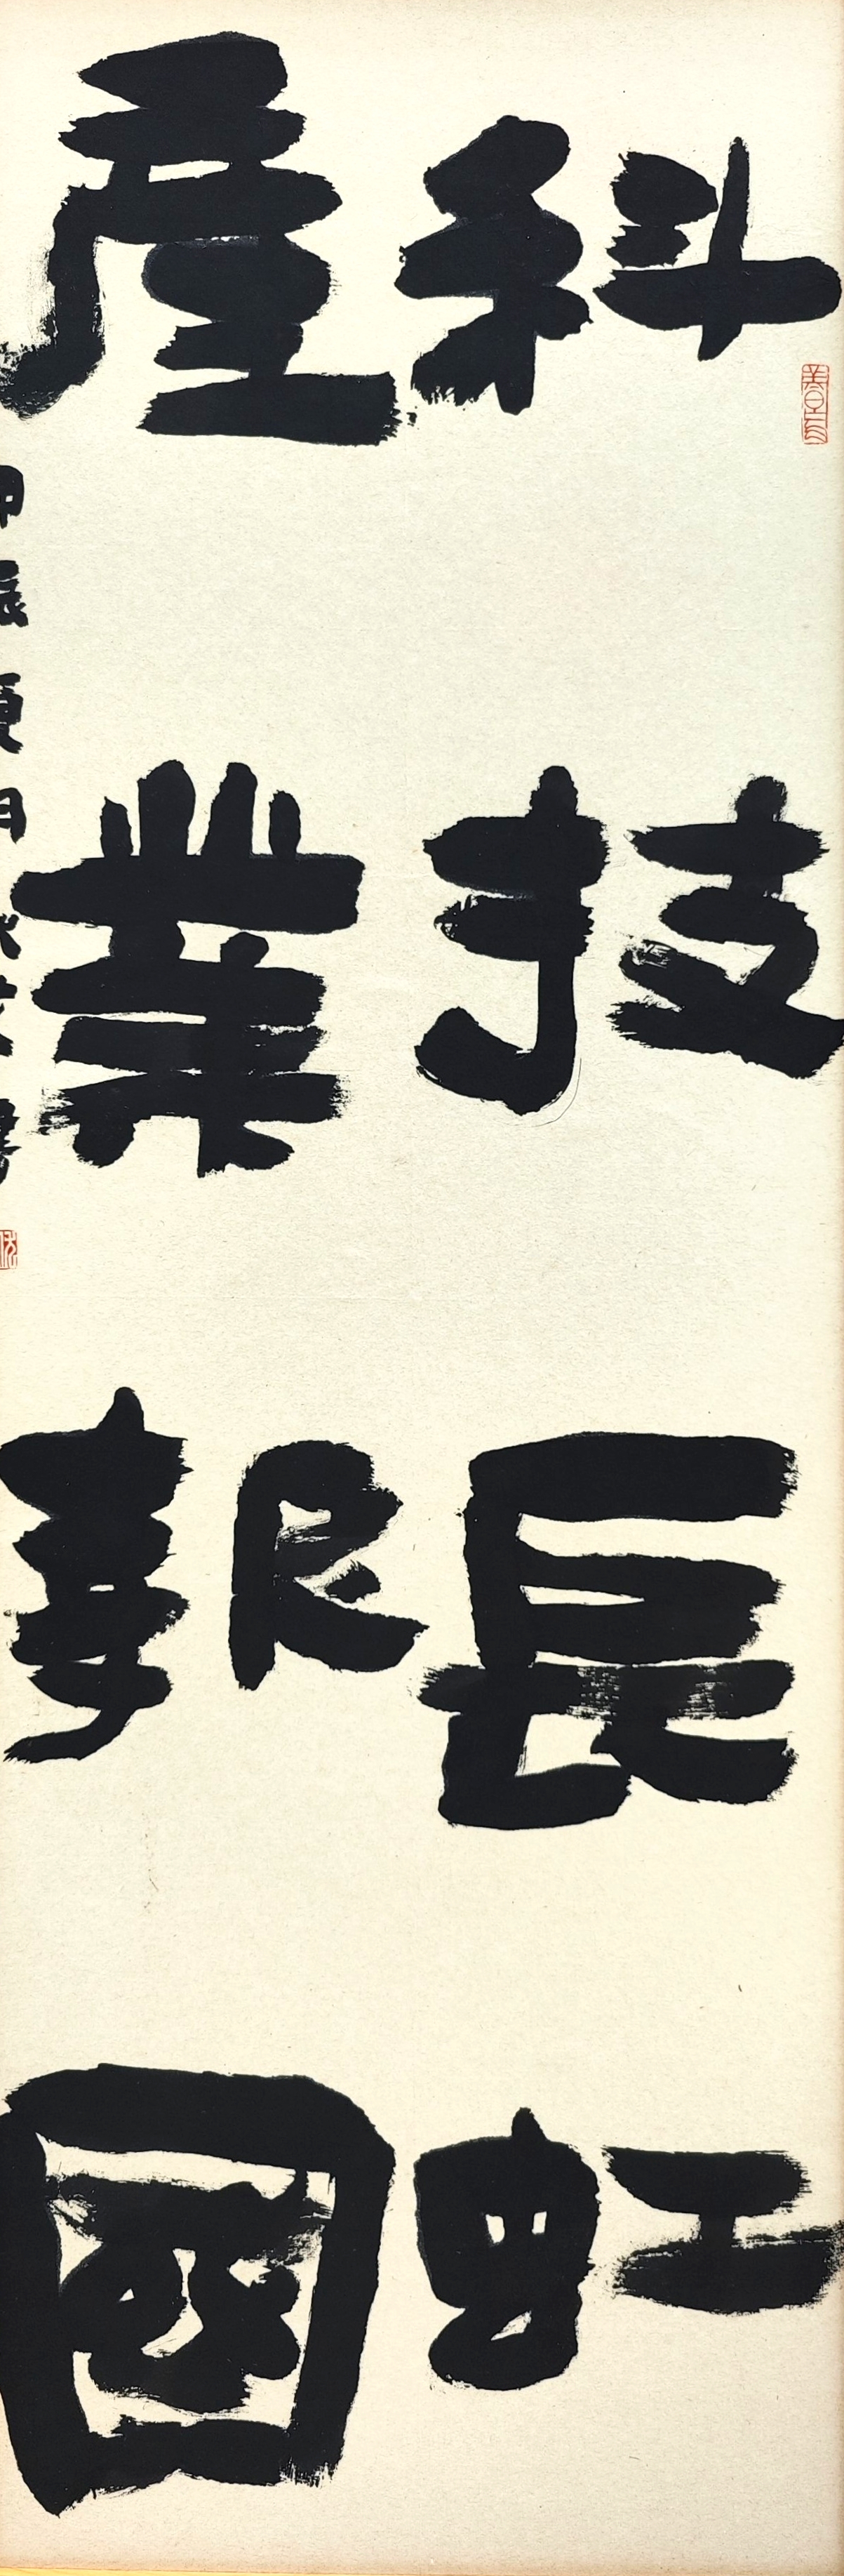 科技長虹
產業報國
甲辰夏月